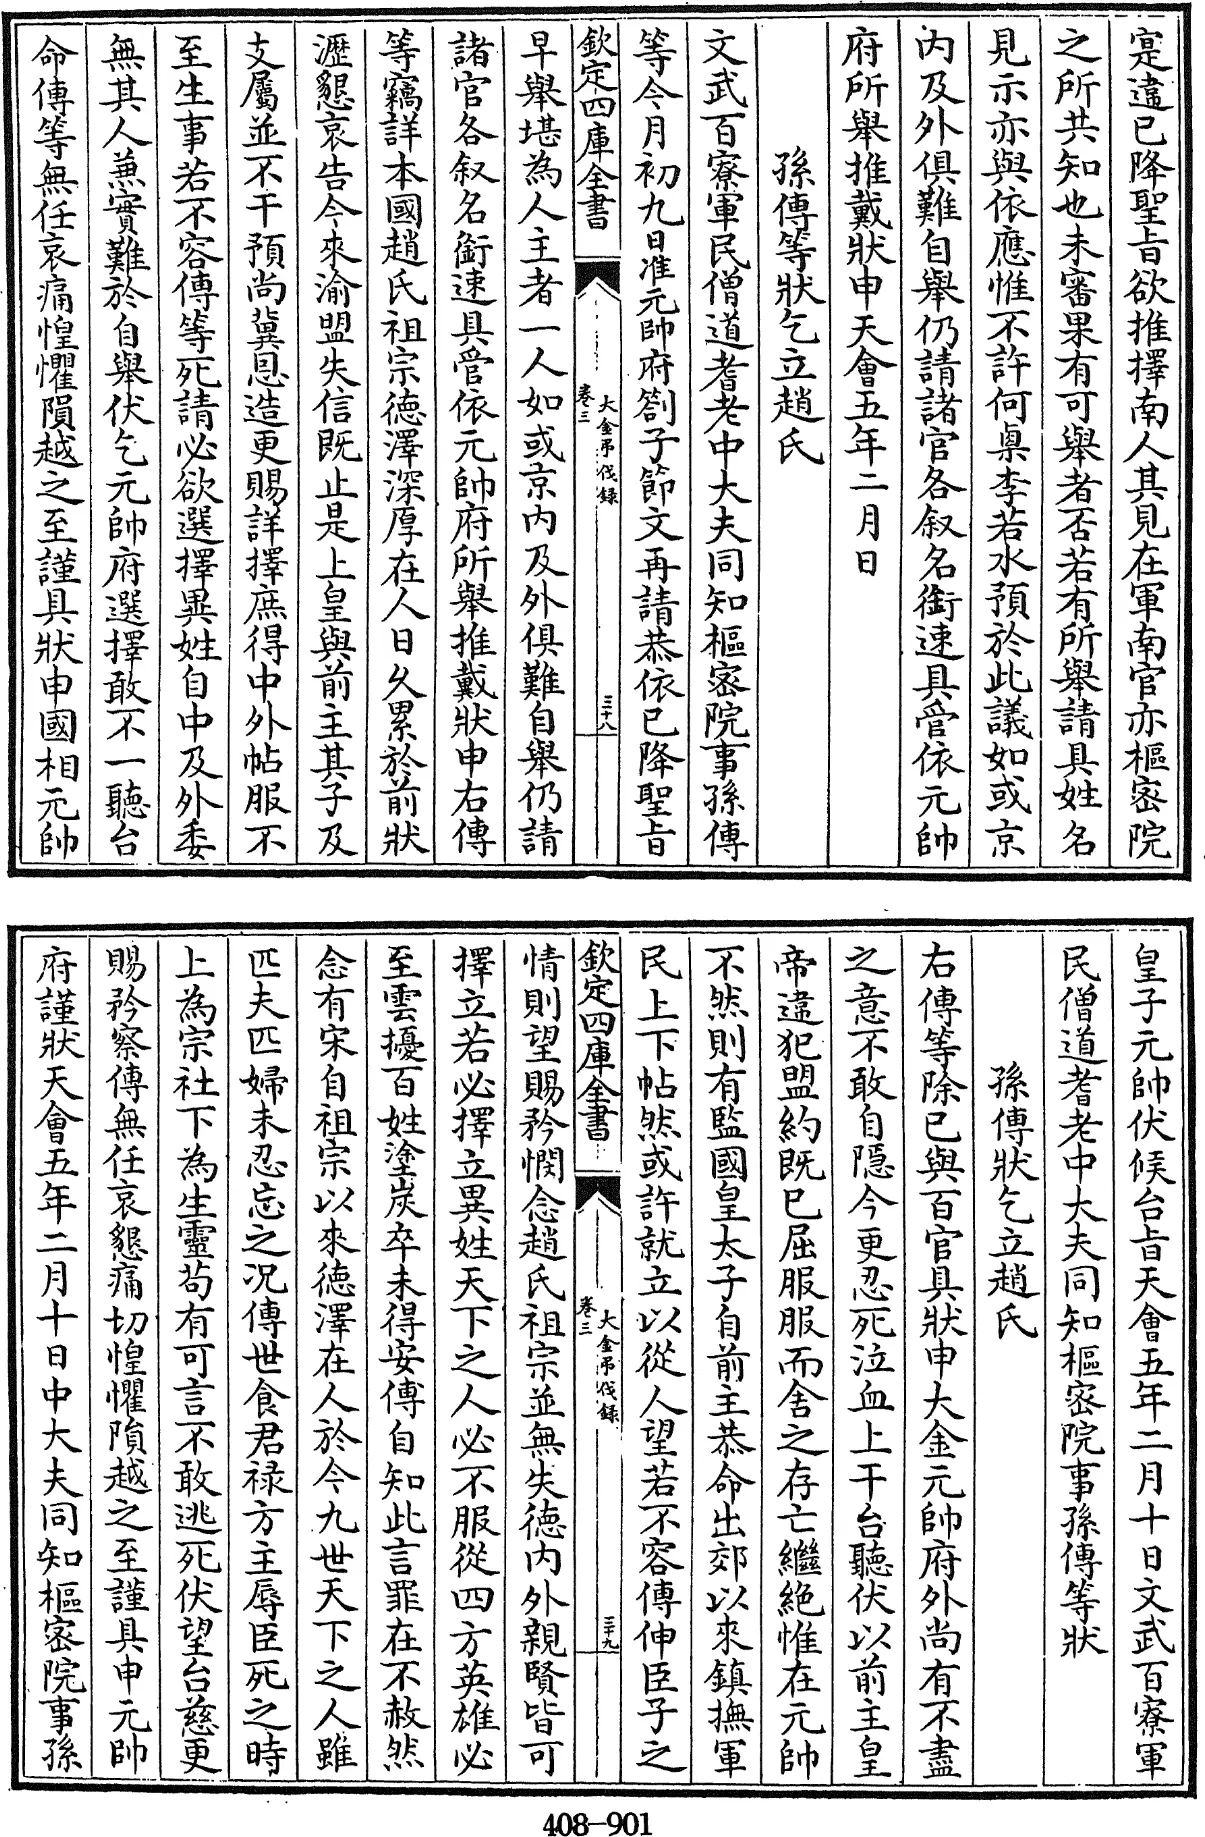 寔違已降聖旨欲推擇南人其見在軍南官亦樞密院
之所共知也未審果有可舉者否若有所舉請具姓名
見示亦與依應惟不許何㮚李若水預於此議如或京
内及外俱難自舉仍請諸官各叙名銜速具管依元帥
府所舉推戴狀申天會五年二月日
孫傅等狀乞立趙氏
文武百寮軍民僧道耆老中大夫同知樞密院事孫傅
等今月初九日准元帥府劄子節文再請恭依已降聖旨
欽定四庫全書
大金弔伐録
卷三
三十八
早舉堪為人主者一人如或京内及外俱難自舉仍請
諸官各叙名銜速具管依元帥府所舉推戴狀申右傅
等竊詳本國趙氏祖宗德澤深厚在人日久累於前狀
瀝懇哀告今來渝盟失信既止是上皇與前主其子及
支屬並不干預尚冀恩造更賜詳擇庶得中外帖服不
至生事若不容傅等死請必欲選擇異姓自中及外委
無其人兼實難於自舉伏乞元帥府選擇敢不一聽台
命傅等無任哀痛惶懼隕越之至謹具狀申國相元帥
皇子元帥伏候台旨天會五年二月十日文武百寮軍
民僧道耆老中大夫同知樞密院事孫傅等狀
孫傅狀乞立趙氏
右傅等除已與百官具狀申大金元帥府外尚有不盡
之意不敢自隱今更忍死泣血上干台聽伏以前主皇
帝違犯盟約既已屈服服而舍之存亡繼絶惟在元帥
不然則有監國皇太子自前主恭命出郊以來鎮撫軍
民上下帖然或許就立以從人望若不容傅伸臣子之
欽定四庫全書
大金弔伐録
卷三
三十九
情則望賜矜憫念趙氏祖宗並無失德内外親賢皆可
擇立若必擇立異姓天下之人必不服從四方英雄必
至雲擾百姓塗炭卒未得安傅自知此言罪在不赦然
念有宋自祖宗以來德澤在人於今九世天下之人雖
匹夫匹婦未忍忘之况傅世食君禄方主辱臣死之時
上為宗社下為生靈苟有可言不敢逃死伏望台慈更
賜矜察傅無任哀懇痛切惶懼隕越之至謹具申元帥
府謹狀天會五年二月十日中大夫同知樞密院事孫
408-901